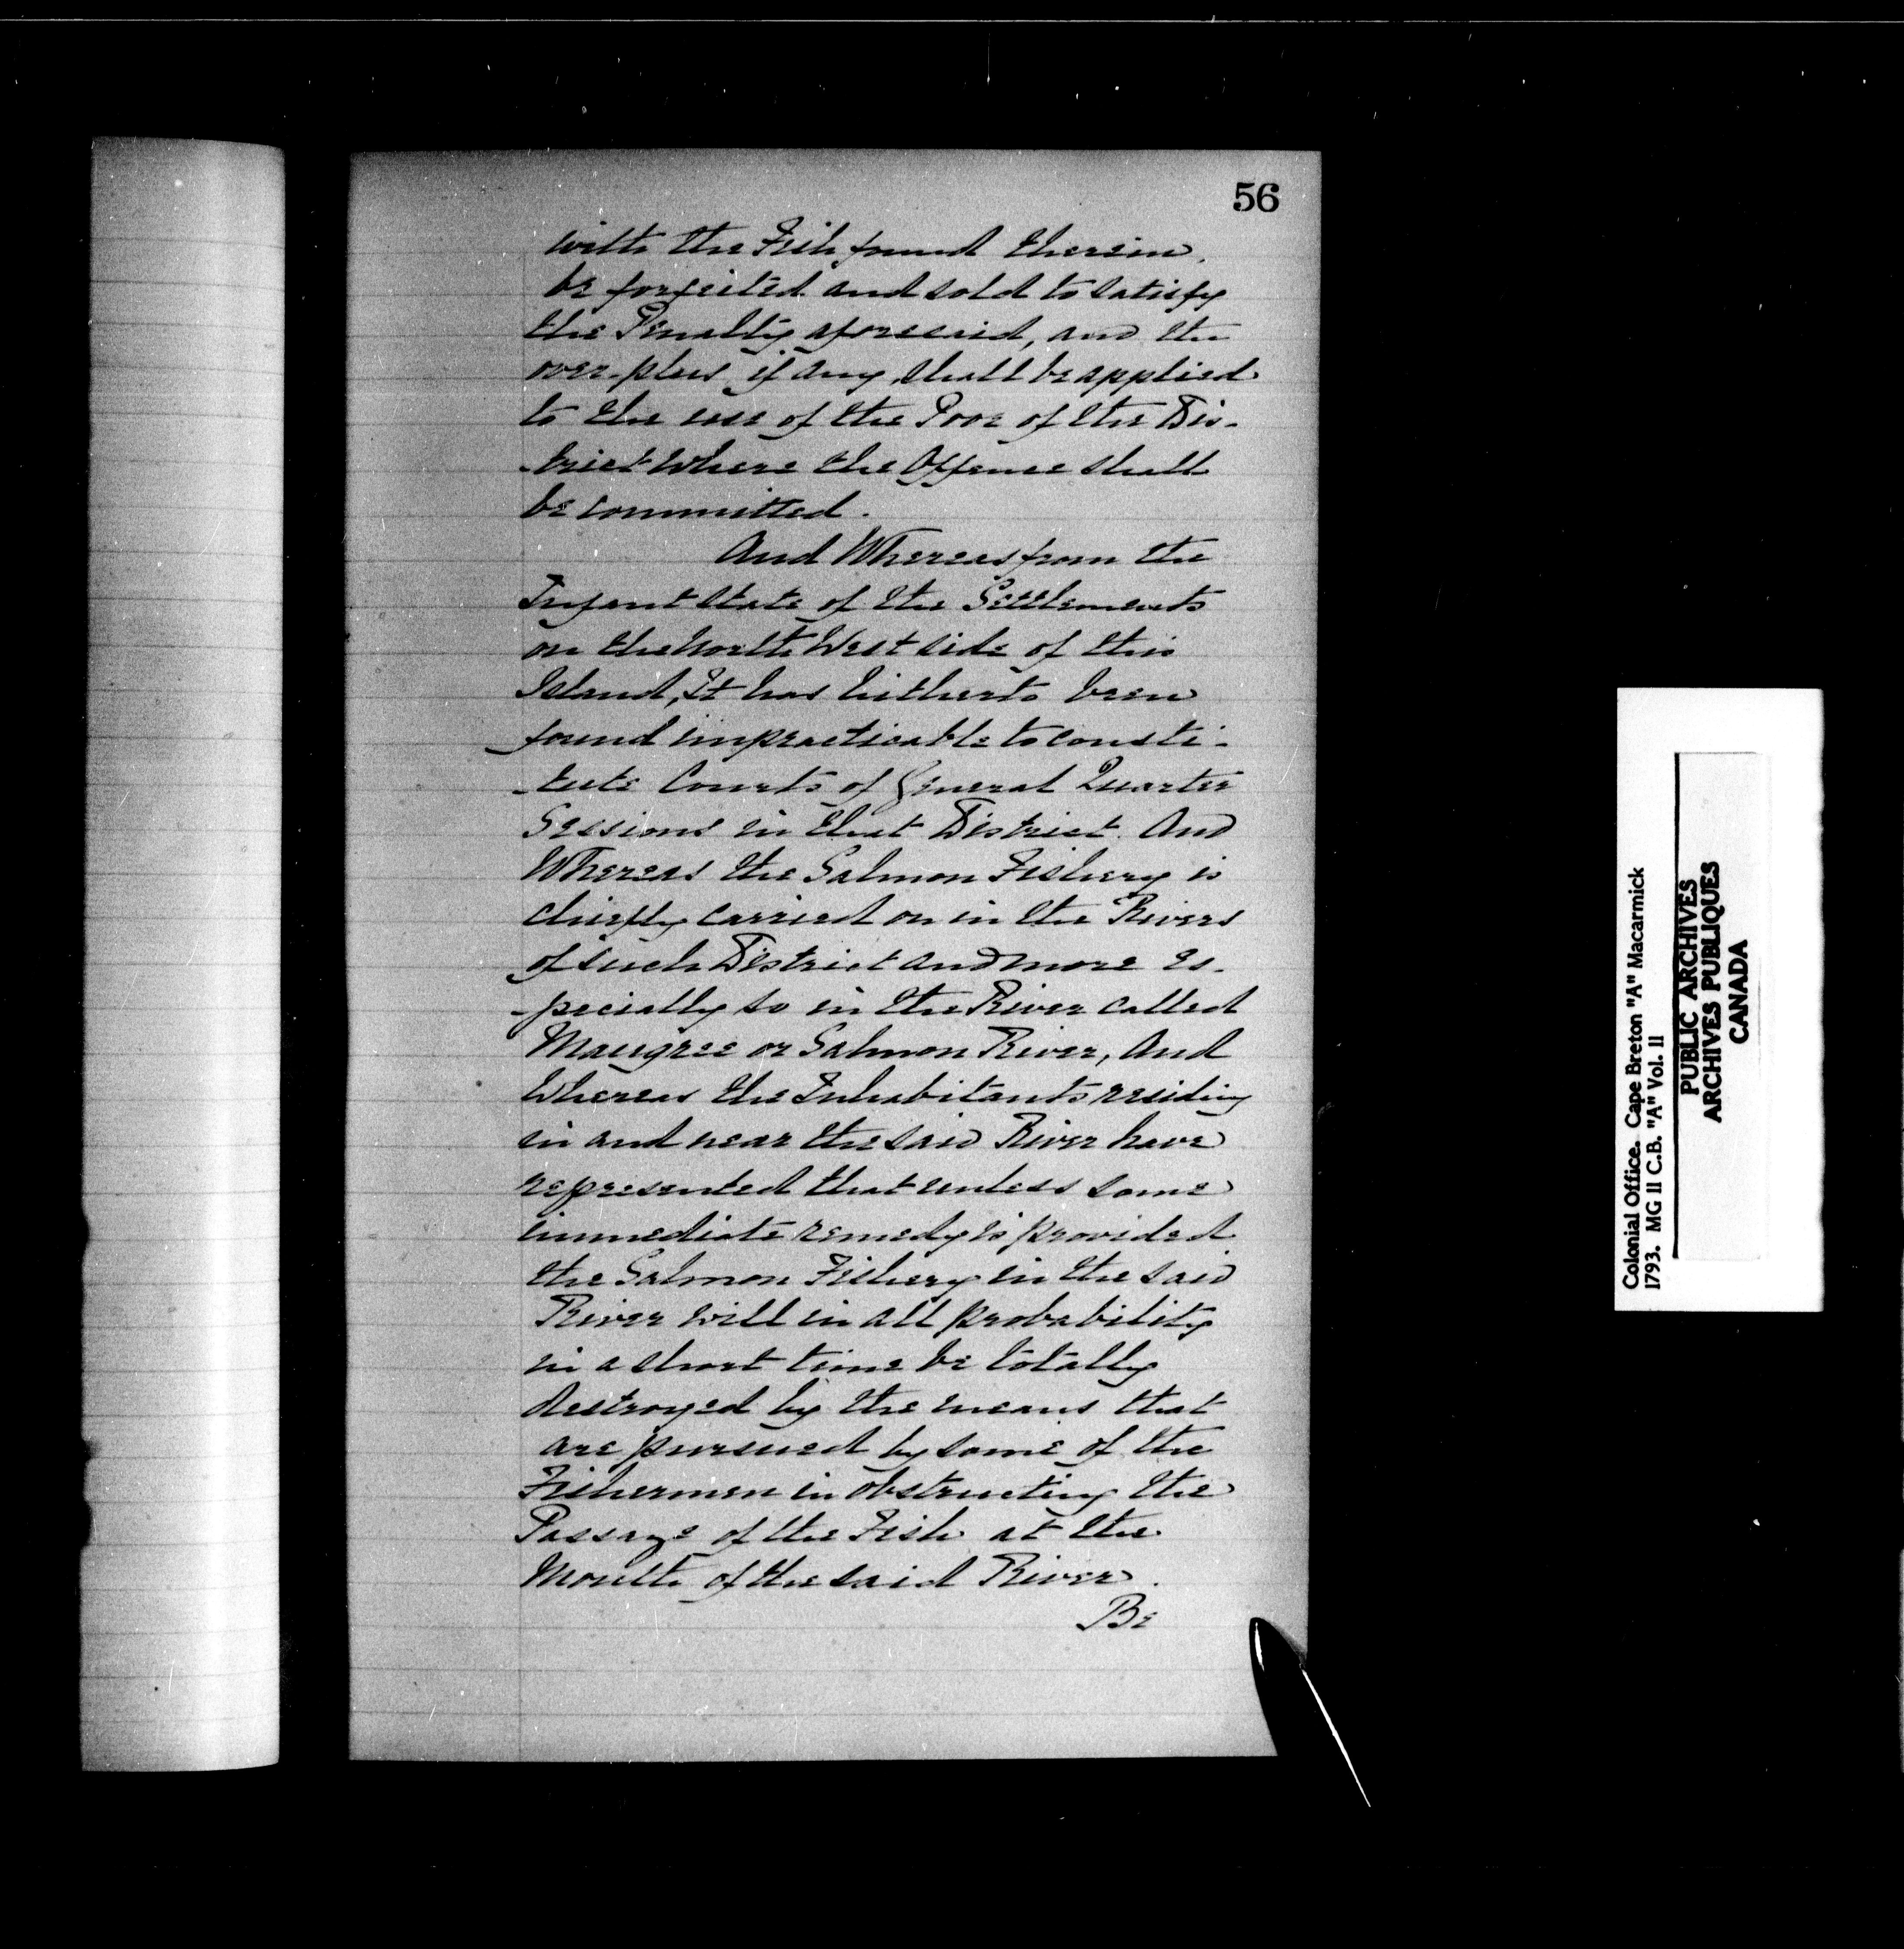 56
with the Fish found therein,
be forfeited and sold to satisfy
the Penalty aforesaid, and the
over-plus if any, shall be applied
to the use of the Poor of the Dis-
-trict where the Offence shall
be committed.
And Whereas from the
Infant state of the Settlements
on the North West side of this
Island, It has hitherto been
found impracticable to consti-
-tute Courts of General Quarter
Sessions in that District. And
Whereas the Salmon Fishery is
chiefly carried on in the Rivers
of such District and more es-
-pecially so in the River called
Maugree or Salmon River, And
Whereas the Inhabitants residing
in and near the said River have
represented that unless some
immediate remedy is provided
the Salmon Fishery in the said
River will in all probability
in a short time be totally
destroyed by the means that
are pursued by some of the
Fishermen in obstructing the
Passage of the Fish at the
Mouth of the said River.
Be
Colonial Office. Cape Breton "A" Macarmick
1793. MG 11 C.B. "A" Vol. 11
PUBLIC ARCHIVES
ARCHIVES PUBLIQUES
CANADA